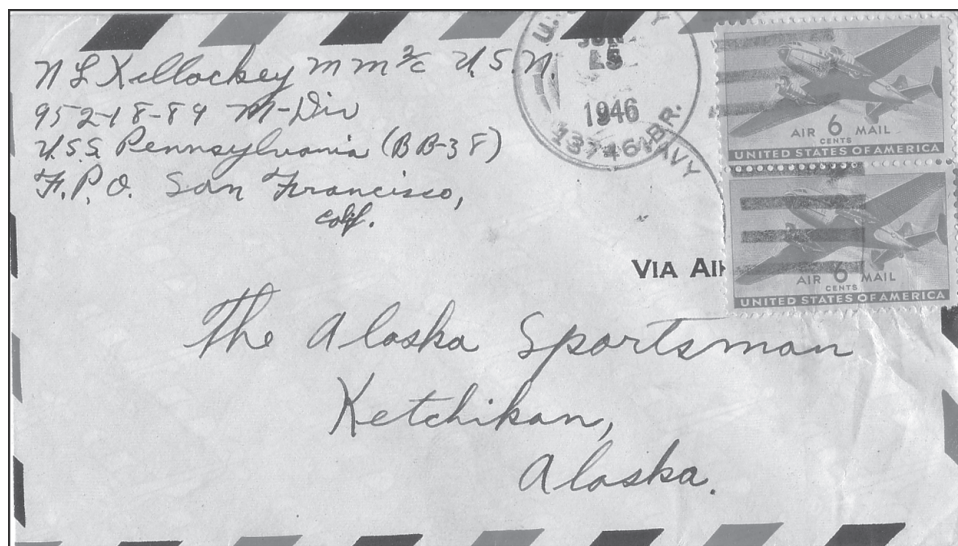 N L Killackey MM 2/c U.S.N.
952-18-84 M-Div
U.S.S. Pennsylvania (BB-38)
F.P.O. San Francisco,
Calif.
U.S.
1946
13746 BR.
NAVY
AIR 6 MAIL
CENTS
UNITED STATES OF AMERICA
AIR 6 MAIL
CENTS
UNITED STATES OF AMERICA
VIA AIR
The Alaska Sportsman
Ketchikan,
Alaska.